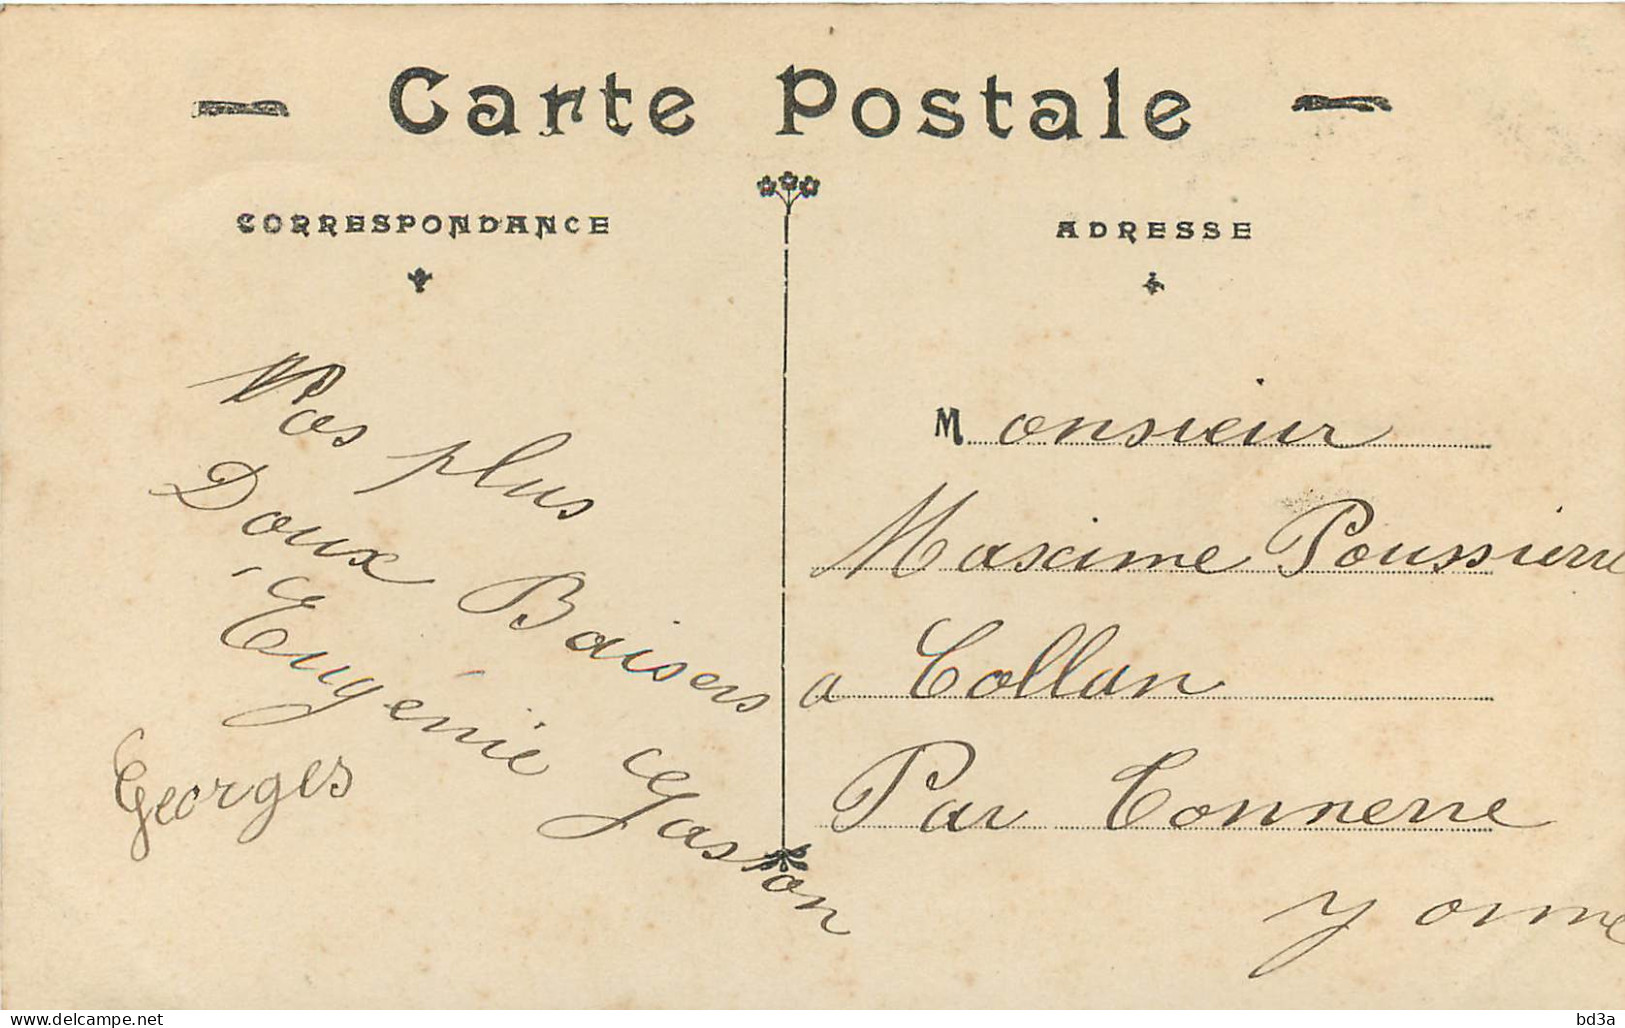 Carte Postale
CORRESPONDANCE
Vos plus
Doux Baisers
Eugénie Gaston
Georges
ADRESSE
Monsieur
Maxime Poussierre
a Collan
Par Tonnerre
Yonne
www.delcampe.net
bd3a